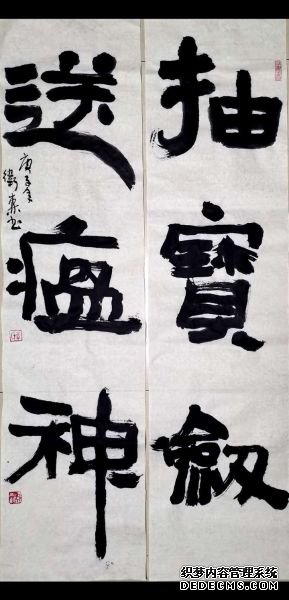 抽寶劔
送瘟神
庚子年
衛東书
织梦内容管理系统
DEDECMS.COM